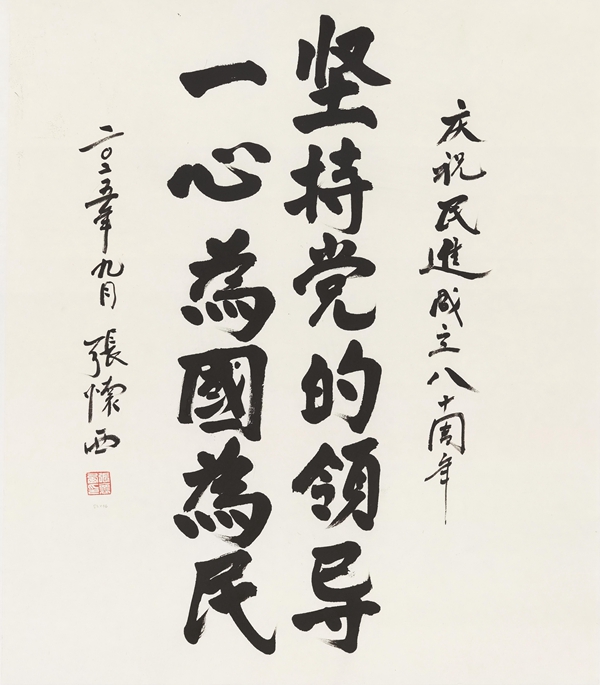 庆祝民進成立八十周年
坚持党的领导
一心為國為民
二〇二五年九月 張懷西